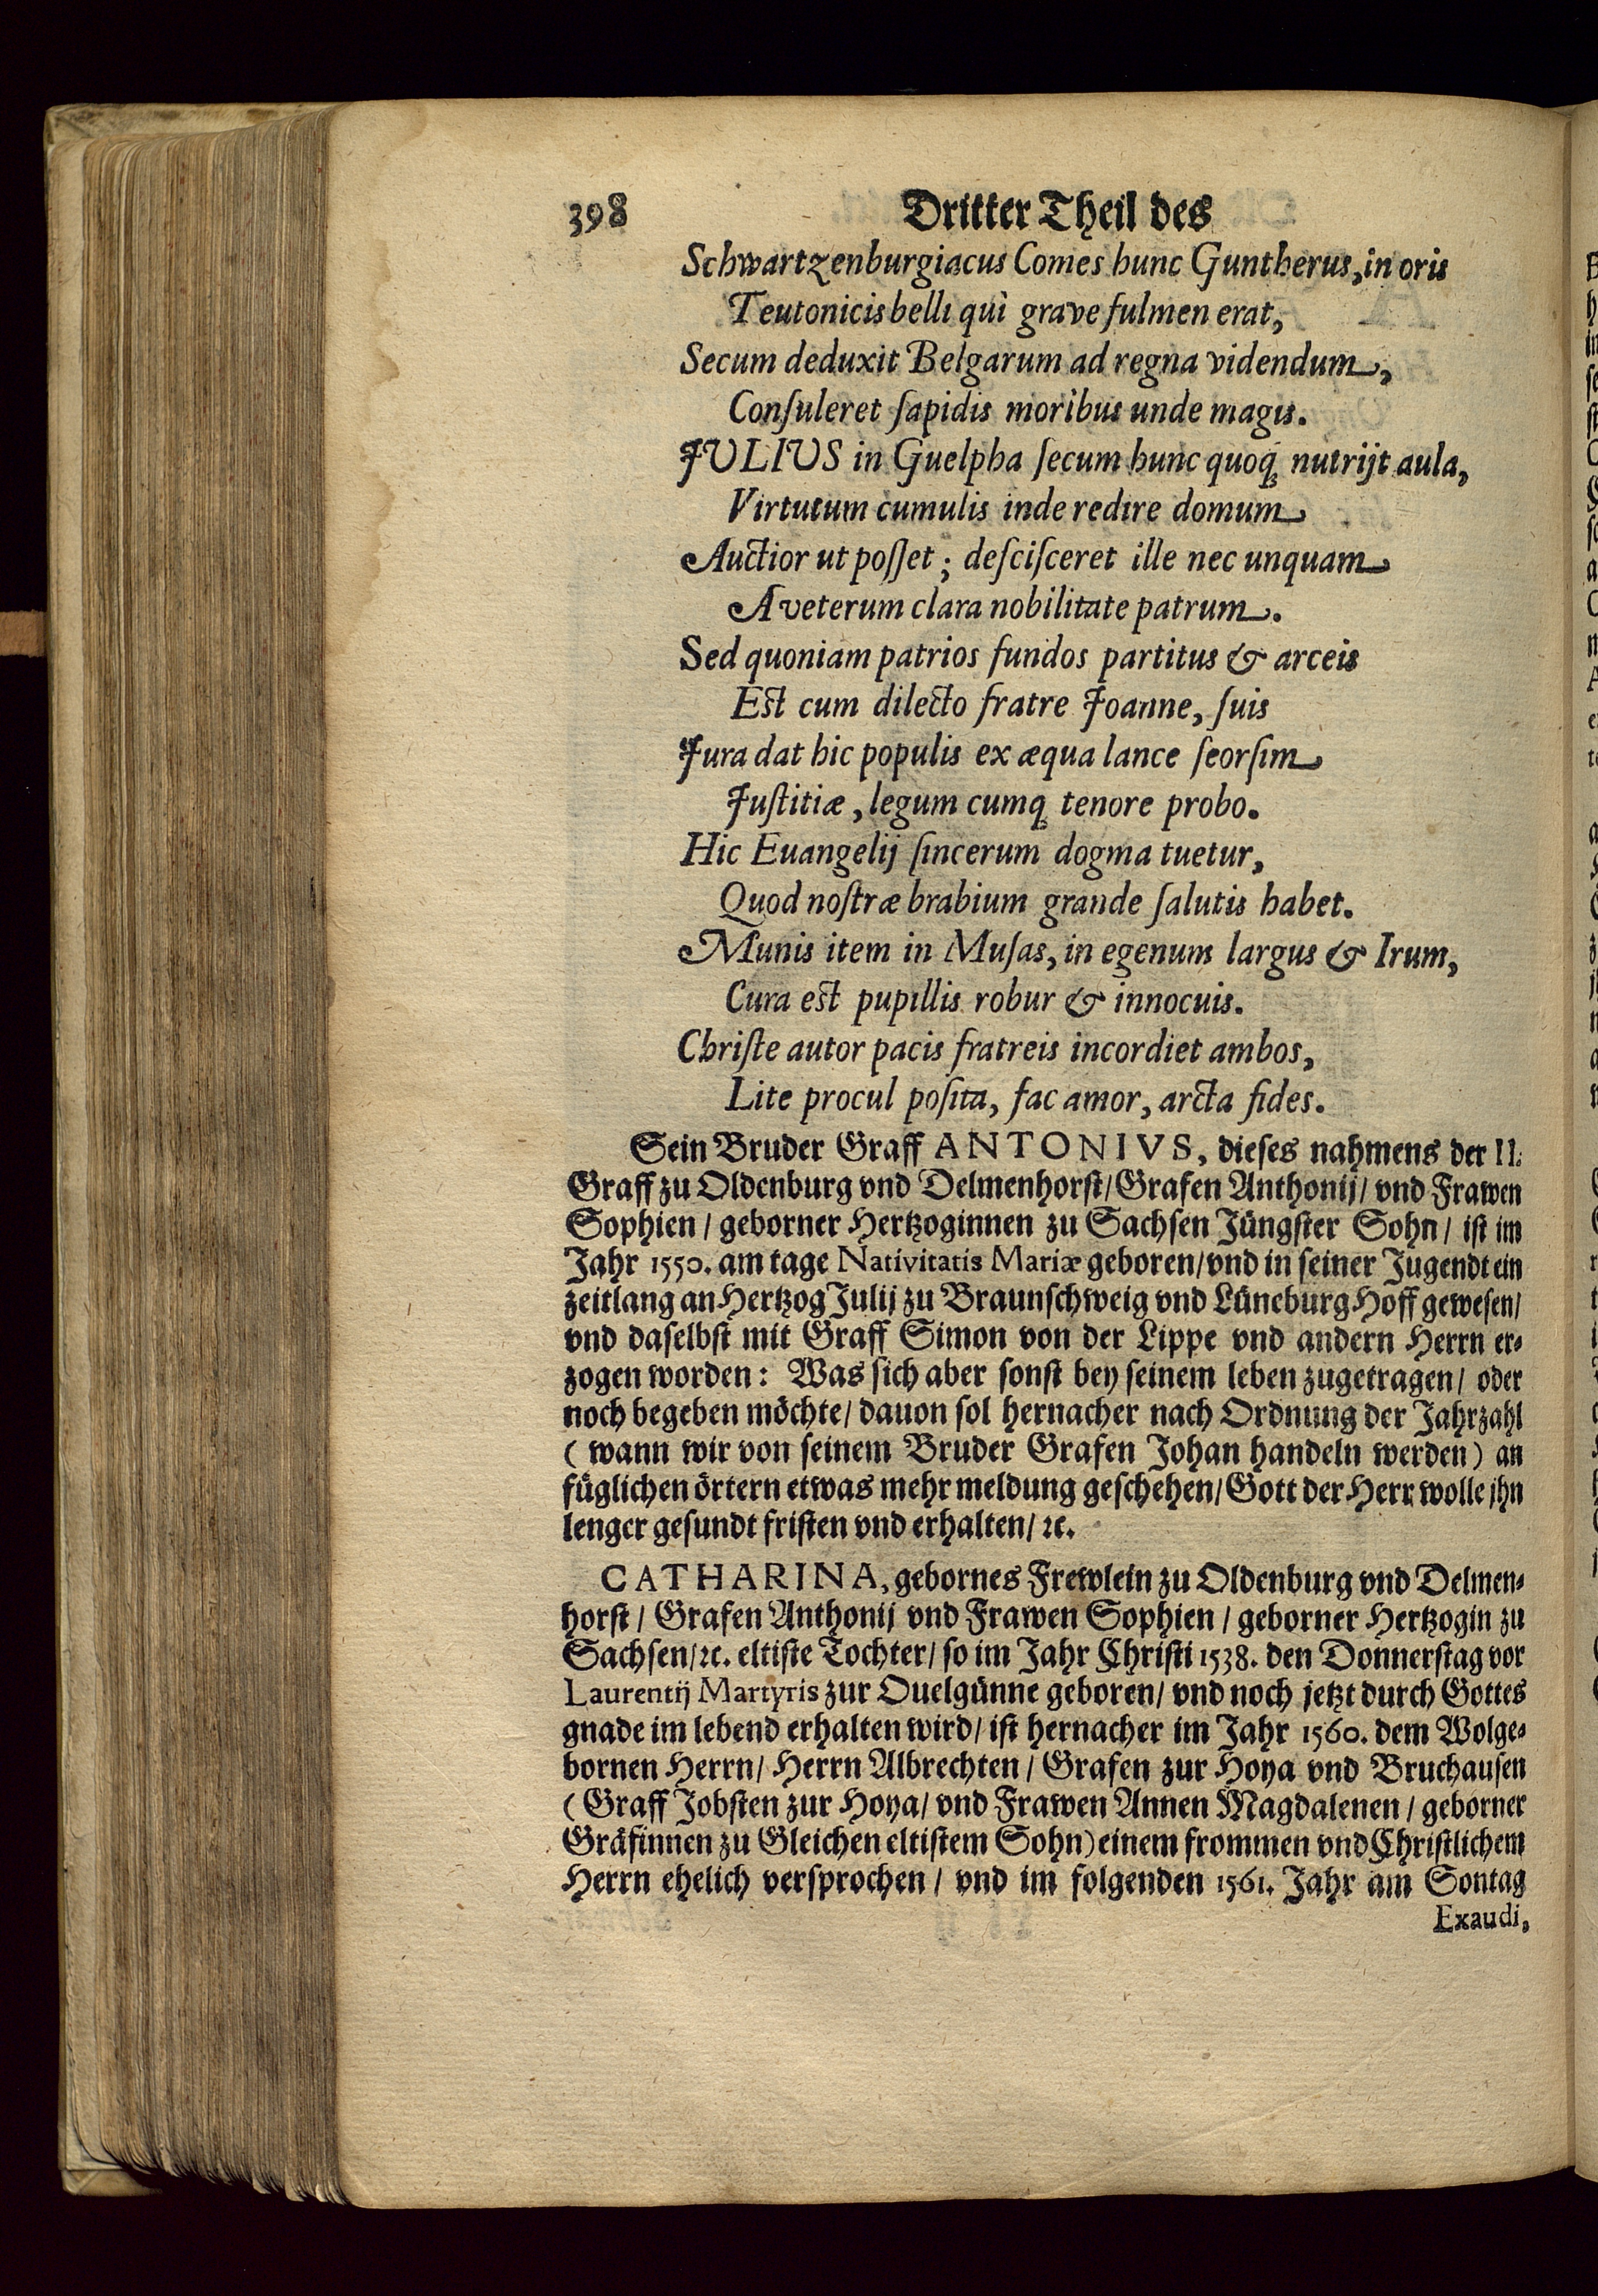 398 Dritter Theil des
Schwartzenburgiacus Comes hunc Guntherus, in oris
Teutonicis belli quì grave fulmen erat,
Secum deduxit Belgarum ad regna videndum,
Conſuleret ſapidis moribus unde magis.
JULIUS in Guelpha ſecum hunc quoq́; nutrijt aula,
Virtutum cumulis inde redire domum
Auctior ut poſſet; deſciſceret ille nec unquam
A veterum clara nobilitate patrum.
Sed quoniam patrios fundos partitus & arceis
Est cum dilecto fratre Joanne, ſuis
Jura dat hic populis ex æqua lance ſeorſim
Juſtitiæ, legum cumq; tenore probo.
Hic Euangelij ſincerum dogma tuetur,
Quod noſtræ brabium grande ſalutis habet.
Munis item in Muſas, in egenum largus & Irum,
Cura est pupillis robur & innocuis.
Chriſte autor pacis fratreis incordiet ambos,
Lite procul poſita, fac amor, arcta fides.
Sein Bruder Graff ANTONIVS, dieſes nahmens der II.
Graff zu Oldenburg vnd Delmenhorſt/ Grafen Anthonij/ vnd Frawen
Sophien/ geborner Hertzoginnen zu Sachſen Jüngſter Sohn/ iſt im
Jahr 1550. am tage Nativitatis Mariæ geboren/ vnd in ſeiner Jugendt ein
zeitlang an Hertzog Julij zu Braunſchweig vnd Lüneburg Hoff geweſen/
vnd daſelbſt mit Graff Simon von der Lippe vnd andern Herrn er-
zogen worden: Was ſich aber ſonſt bey ſeinem leben zugetragen/ oder
noch begeben möchte/ dauon ſol hernacher nach Ordnung der Jahrzahl
(wann wir von ſeinem Bruder Grafen Johan handeln werden) an
füglichen örtern etwas mehr meldung geſchehen/ Gott der Herr wolle jhn
lenger geſundt friſten vnd erhalten/ ꝛc.
CATHARINA, gebornes Frewlein zu Oldenburg vnd Delmen-
horſt/ Grafen Anthonij vnd Frawen Sophien/ geborner Hertzogin zu
Sachſen/ ꝛc. eltiſte Tochter/ ſo im Jahr Chriſti 1538. den Donnerſtag vor
Laurentij Martyris zur Ouelgünne geboren/ vnd noch jetzt durch Gottes
gnade im lebend erhalten wird/ iſt hernacher im Jahr 1560. dem Wolge-
bornen Herrn/ Herrn Albrechten/ Grafen zur Hoya vnd Bruchauſen
(Graff Jobſten zur Hoya/ vnd Frawen Annen Magdalenen/ geborner
Gräfinnen zu Gleichen eltiſtem Sohn) einem frommen vnd Chriſtlichem
Herrn ehelich verſprochen/ vnd im folgenden 1561. Jahr am Sontag
Exaudi,